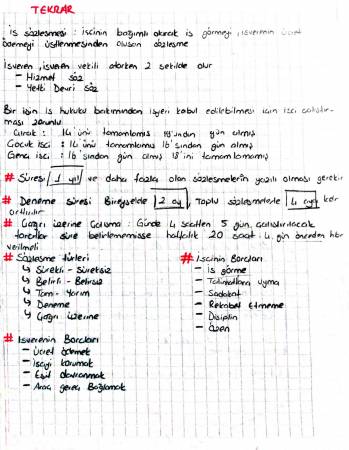 TEKRAR
iş sözleşmesi : işcinin bağımlı olarak iş görmeyi, işverenin ücret
ödemeyi üstlenmesinden oluşan sözleşme
İşveren, işveren vekili atarken 2 şekilde olur
- Hizmet söz
- Yetki Devri söz
Bir işin iş hukuku bakımından işyeri kabul edilebilmesi için işci çalıştır-
ması zorunlu
Çırak : 14'ünü tamamlamış 18'inden gün almış
Çocuk işci : 14'ünü tamamlamış 16'sından gün almış
Genç işci : 16'sından gün almış 18'ini tamamlamamış
# Süresi 1 yıl ve daha fazla olan sözleşmelerin yazılı olması gerekir
# Deneme süresi Bireyselde 2 ay, Toplu sözleşmelerle 4 aya kdr
arttırılır
# Çağrı üzerine Çalışma : Günde 4 saatten 5 gün çalıştırılacak
taraflar süre belirlememişse haftalık 20 saat. 4 gün önceden hbr
verilmeli
# Sözleşme türleri
↳ Sürekli - Süreksiz
↳ Belirli - Belirsiz
↳ Tam - Yarım
↳ Deneme
↳ Çağrı üzerine
# İşcinin Borcları
- iş görme
- Talimatlara uyma
- Sadakat
- Rekabet Etmeme
- Disiplin
- Özen
# İşverenin Borcları
- Ücret ödemek
- İşciyi korumak
- Eşit davranmak
- Araç gereç Sağlamak